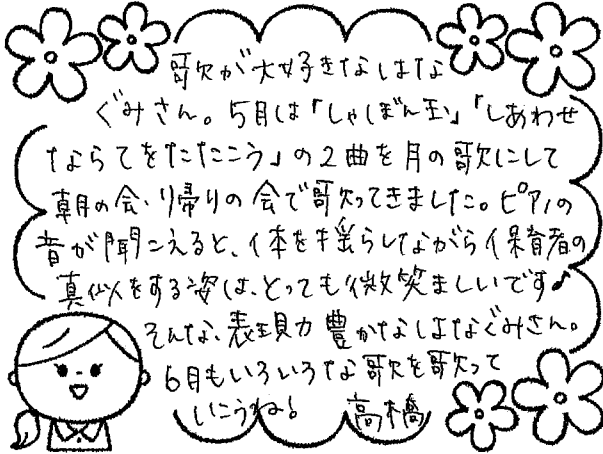 歌が大好きなはな
ぐみさん。5月は「しゃぼん玉」「しあわせ
ならてをたたこう」の2曲を月の歌にして
朝の会、帰りの会で歌ってきました。ピアノの
音が聞こえると、体を揺らしながら保育者の
真似をする姿は、とっても微笑ましいです♪
そんな、表現力豊かなはなぐみさん。
6月もいろいろな歌を歌って
いこうね! 高橋